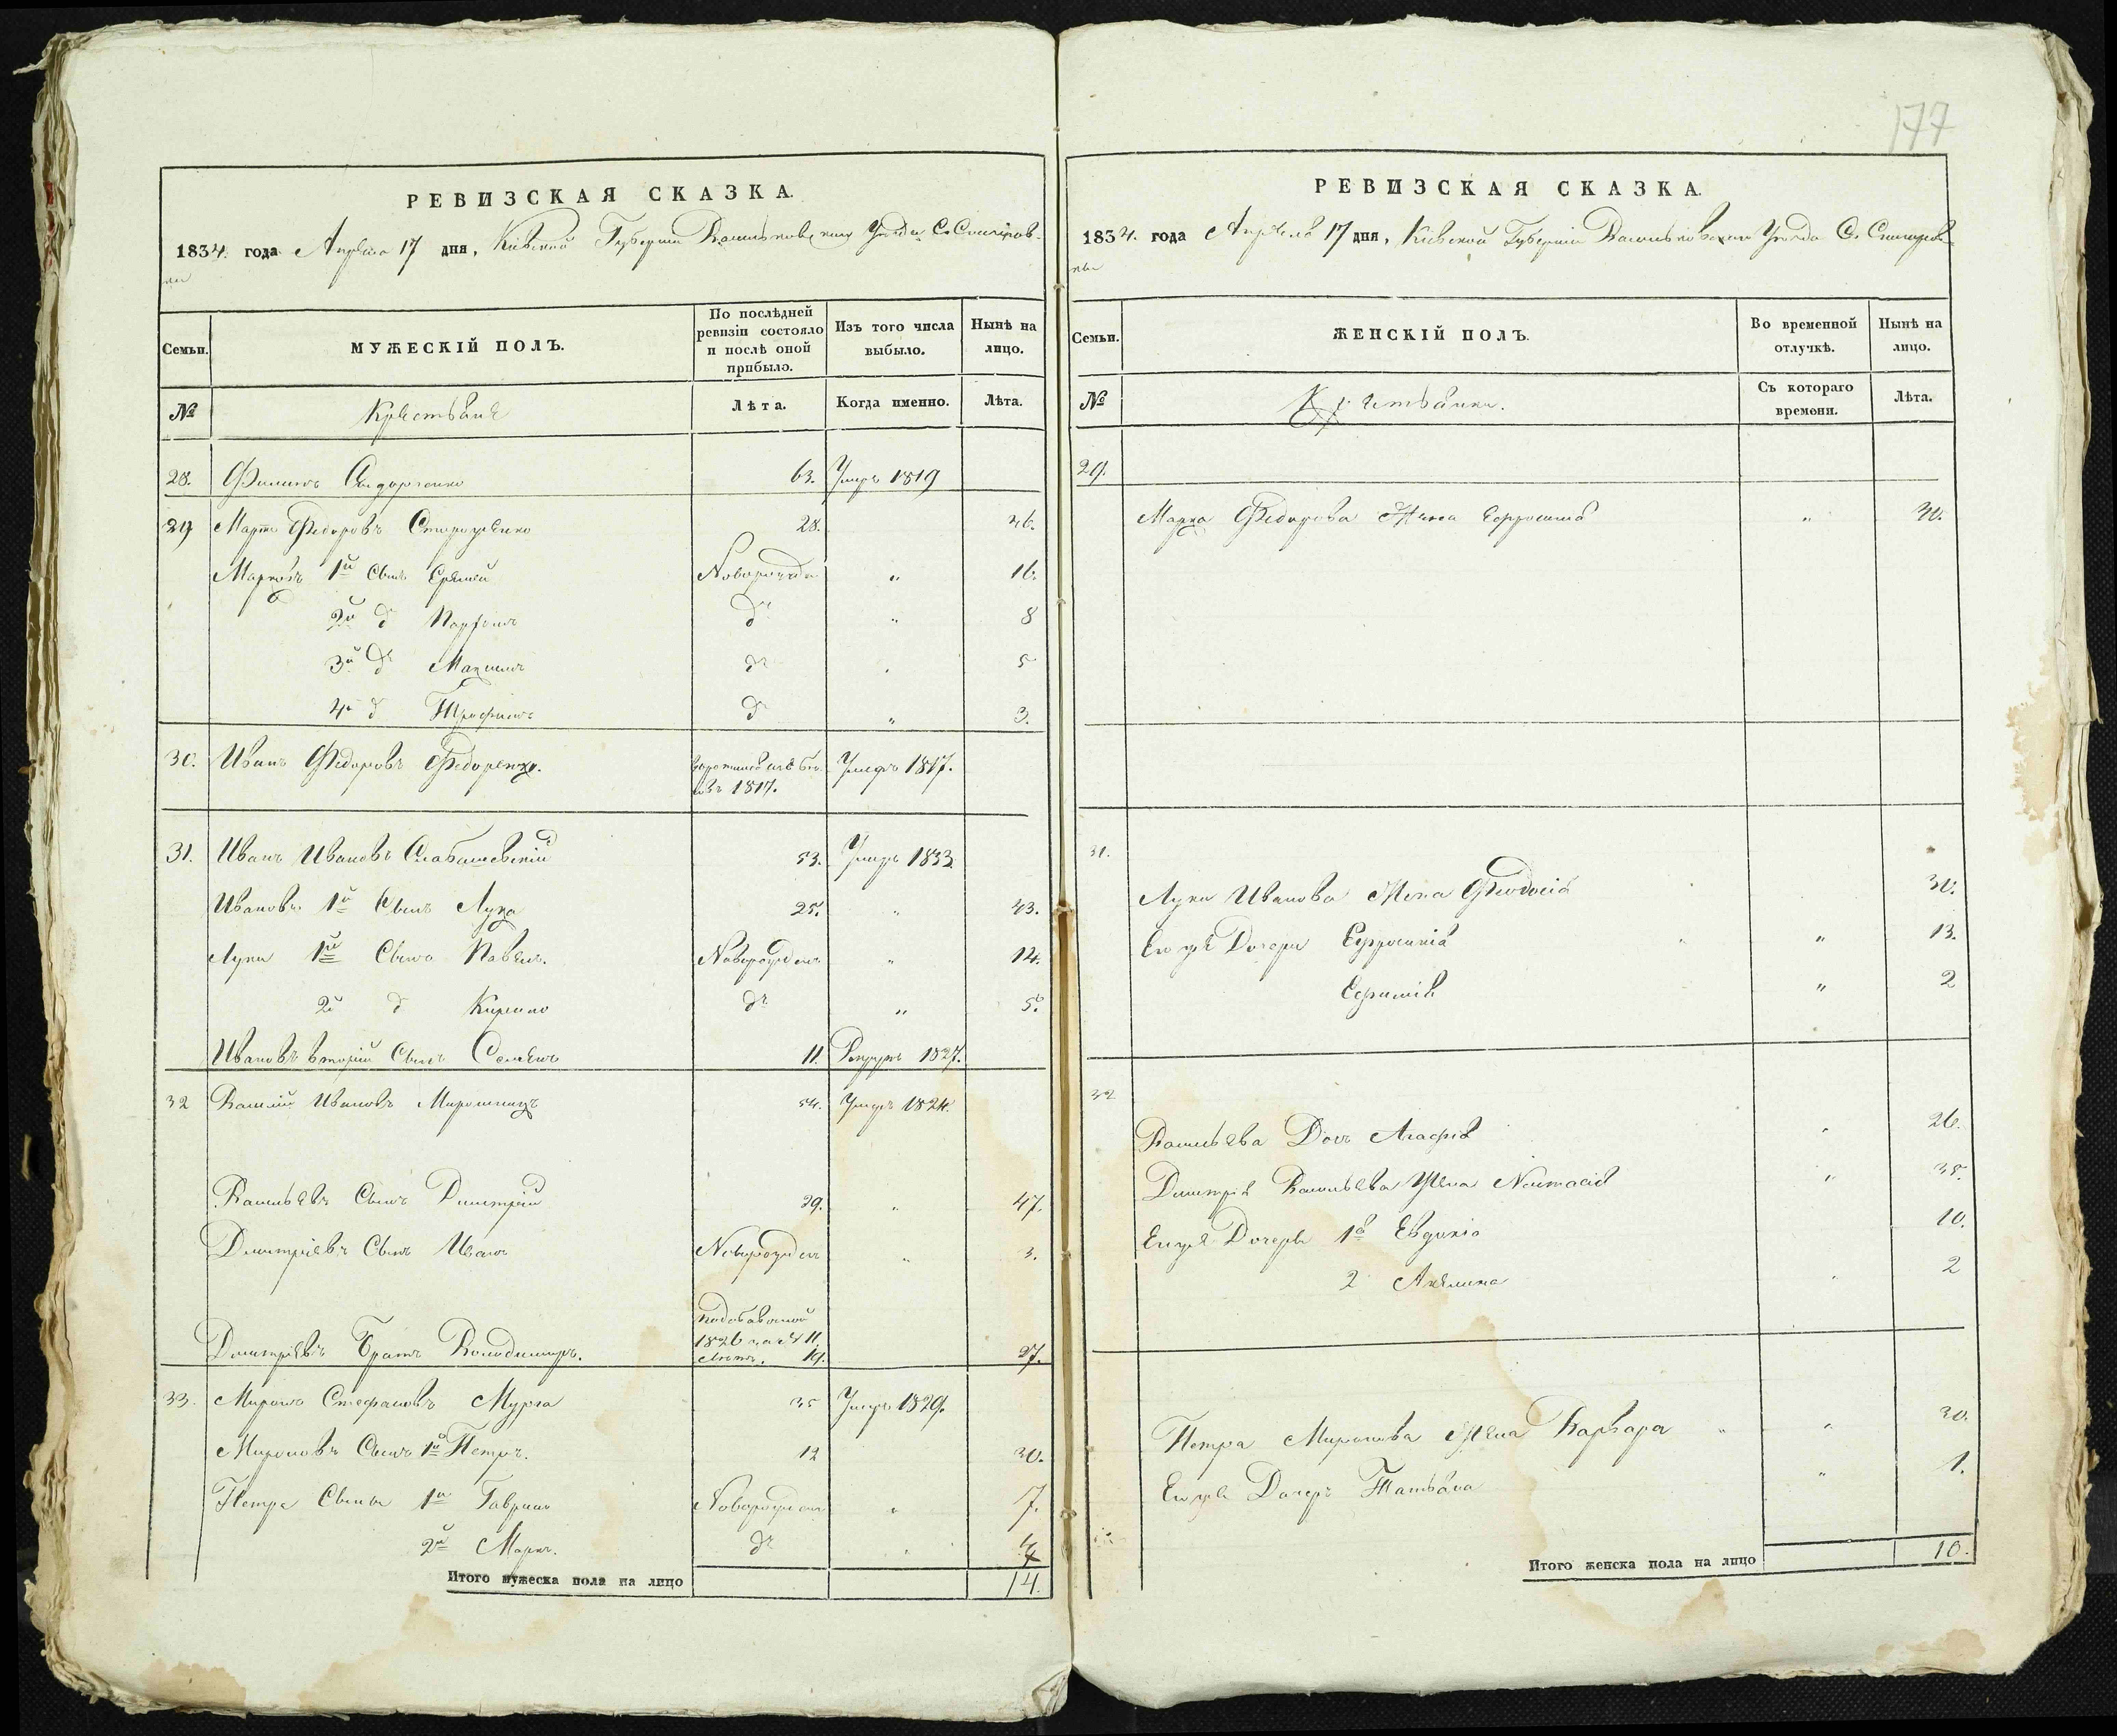 177
РЕВИЗСКАЯ СКАЗКА.
1834. года Апреля 17 дня, Кіевской Губерніи Васильковскаго Уезда С.
Семьи. МУЖЕСКІЙ ПОЛЪ. По послѣдней ревизіи состояло и послѣ оной прибыло. Изъ того числа выбыло. Нынѣ на лицо.
№ Крестьяне Лѣта. Когда именно. Лѣта.
28. Филипъ 63. Умре 1819
29 Марко Федоровъ Стороженко 28. 46.
Марковъ 1й Сынъ Еремій Новорожден „ 16.
2й д Парфенъ дº „ 8
3й дº Максимъ дº „ 5
4й д Трофимъ дº „ 3.
30. Иванъ Федоровъ Федоренко. 1817. Умеръ 1817.
31. Иванъ Ивановъ 53. Умре 1833
Ивановъ 1й Сынъ Лука 25. „ 43.
Луки 1й Сынъ Павелъ. Новорожденъ „ 14.
2й д Кирило дº „ 5.
Ивановъ вторій Сынъ Семенъ 11. Рекрут 1827.
32 Василій Ивановъ Мирошникъ 54. Умре 1824.
Васильевъ Сынъ Дмитрій 29. „ 47.
Дмитріевъ Сынъ Иванъ Новорожден „ 3.
Дмитріевъ Братъ Володимиръ. 1826 19. 27.
33. Миронъ Стефановъ Мурга 35 Умре 1829.
Мироновъ Сынъ 1й Петръ. 12 30.
Петра Сыны 1й Гаврило Новорожден „ 7.
2й Марко. дº „
Итого мужеска пола на лицо 14.
РЕВИЗСКАЯ СКАЗКА.
1834. года Апреля 17 дня, Кіевской Губерніи Васильковскаго Уезда С.
Семьи. ЖЕНСКІЙ ПОЛЪ. Во временной отлучкѣ. Нынѣ на лицо.
№ Крестьянки. Съ котораго времени. Лѣта.
29.
Марка Федорова Жена Ефросинія „
31.
Луки Иванова Жена Феодосія 30.
Ихъ же Дочери Ефросинія „ 13.
Ефимія „ 2
32
Васильева Дочъ Агафія „ 26.
Дмитрія Васильева Жена Настасія „ 35.
Ихъ же Дочери 1я Евдокія 10.
2 Акилина „ 2
Петра Миронова Жена Варвара „ „ 30.
Ихъ же Дочеръ Татьяна „ 1.
Итого женска пола на лицо 10.